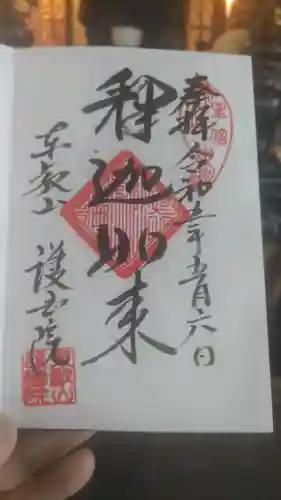 奉拝 令和五年五月六日
釋迦如来
東叡山 護国院